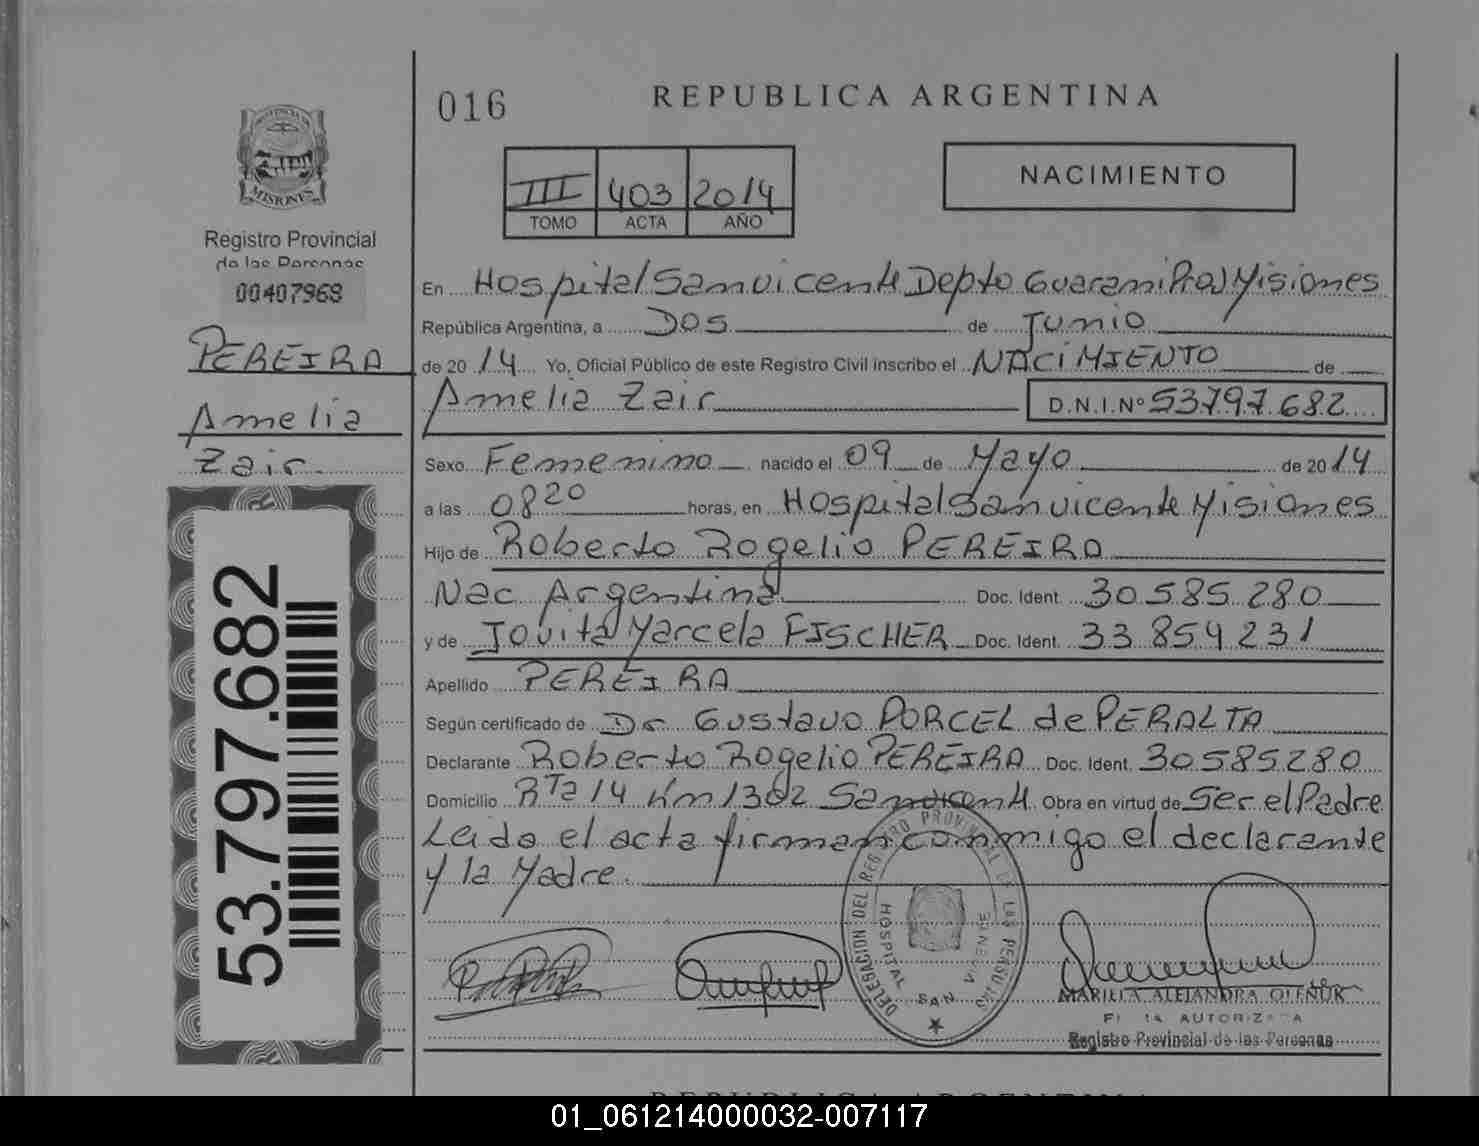 PROVINCIA DE
MISIONES
Registro Provincial
de las Personas
00407968
PEREIRA
Amelia
Zair
53.797.682
016
REPUBLICA ARGENTINA
III 403 2014
TOMO ACTA AÑO
NACIMIENTO
En Hospital San vicente Depto Guarani Prov Misiones
República Argentina, a Dos de Junio
de 2014 Yo, Oficial Público de este Registro Civil inscribo el NACIMIENTO de
Amelia Zair D.N.I.Nº 53.797.682
Sexo Femenino nacido el 09 de Mayo de 2014
a las 0820 horas, en Hospital San vicente Misiones
Hijo de Roberto Rogelio PEREIRA
Nac Argentina Doc. Ident. 30.585.280
y de Jovita Marcela FISCHER Doc. Ident. 33 859 231
Apellido PEREIRA
Según certificado de Dr Gustavo PORCEL de PERALTA
Declarante Roberto Rogelio PEREIRA Doc. Ident. 30585280
Domicilio RTa 14 Km 1302 San vicente Obra en virtud de Ser el Padre
Leida el acta firman conmigo el declarante
y la Madre.
DELEGACION DEL REGISTRO PROVINCIAL DE LAS PERSONAS
HOSPITAL SAN VICENTE
MARIELA ALEJANDRA OLEÑUK
AUTORIZADA
Registro Provincial de las Personas
REPUBLICA ARGENTINA
01_061214000032-007117